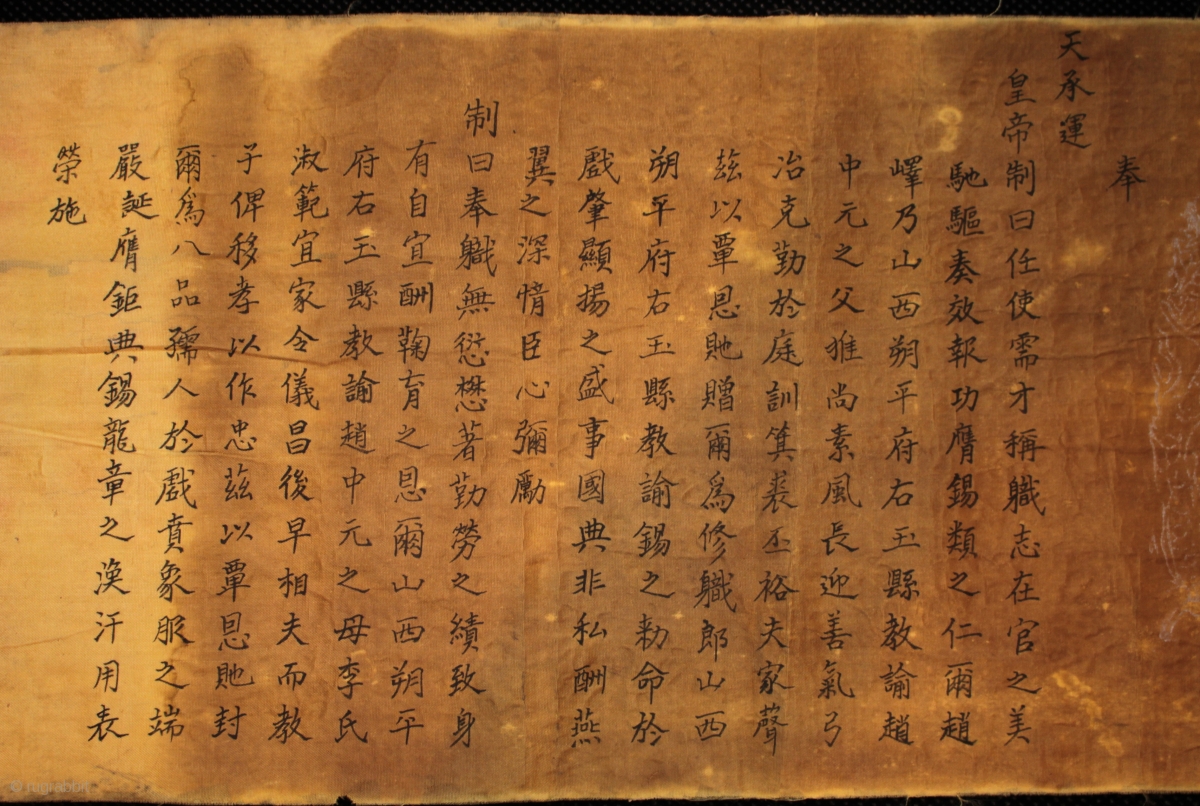 奉
天承運
皇帝制曰任使需才稱職志在官之美
馳驅奏效報功膺錫類之仁爾趙
嶧乃山西朔平府右玉縣教諭趙
中元之父雅尚素風長迎善氣弓
冶克勤於庭訓箕裘丕裕夫家聲
茲以覃恩貤贈爾爲修職郎山西
朔平府右玉縣教諭錫之勅命於
戲肇顯揚之盛事國典非私酬燕
翼之深情臣心彌勵
制曰奉職無愆懋著勤勞之績致身
有自宜酬鞠育之恩爾山西朔平
府右玉縣教諭趙中元之母李氏
淑範宜家令儀昌後早相夫而教
子俾移孝以作忠茲以覃恩貤封
爾爲八品孺人於戲賁象服之端
嚴誕膺鉅典錫龍章之渙汗用表
榮施
© rugrabbit